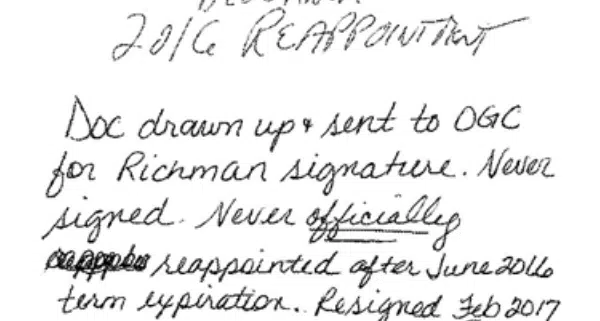 2016 REAPPOINTMENT
Doc drawn up & sent to OGC
for Richman signature. Never
signed. Never officially
reappointed after June 2016
term expiration. Resigned Feb 2017